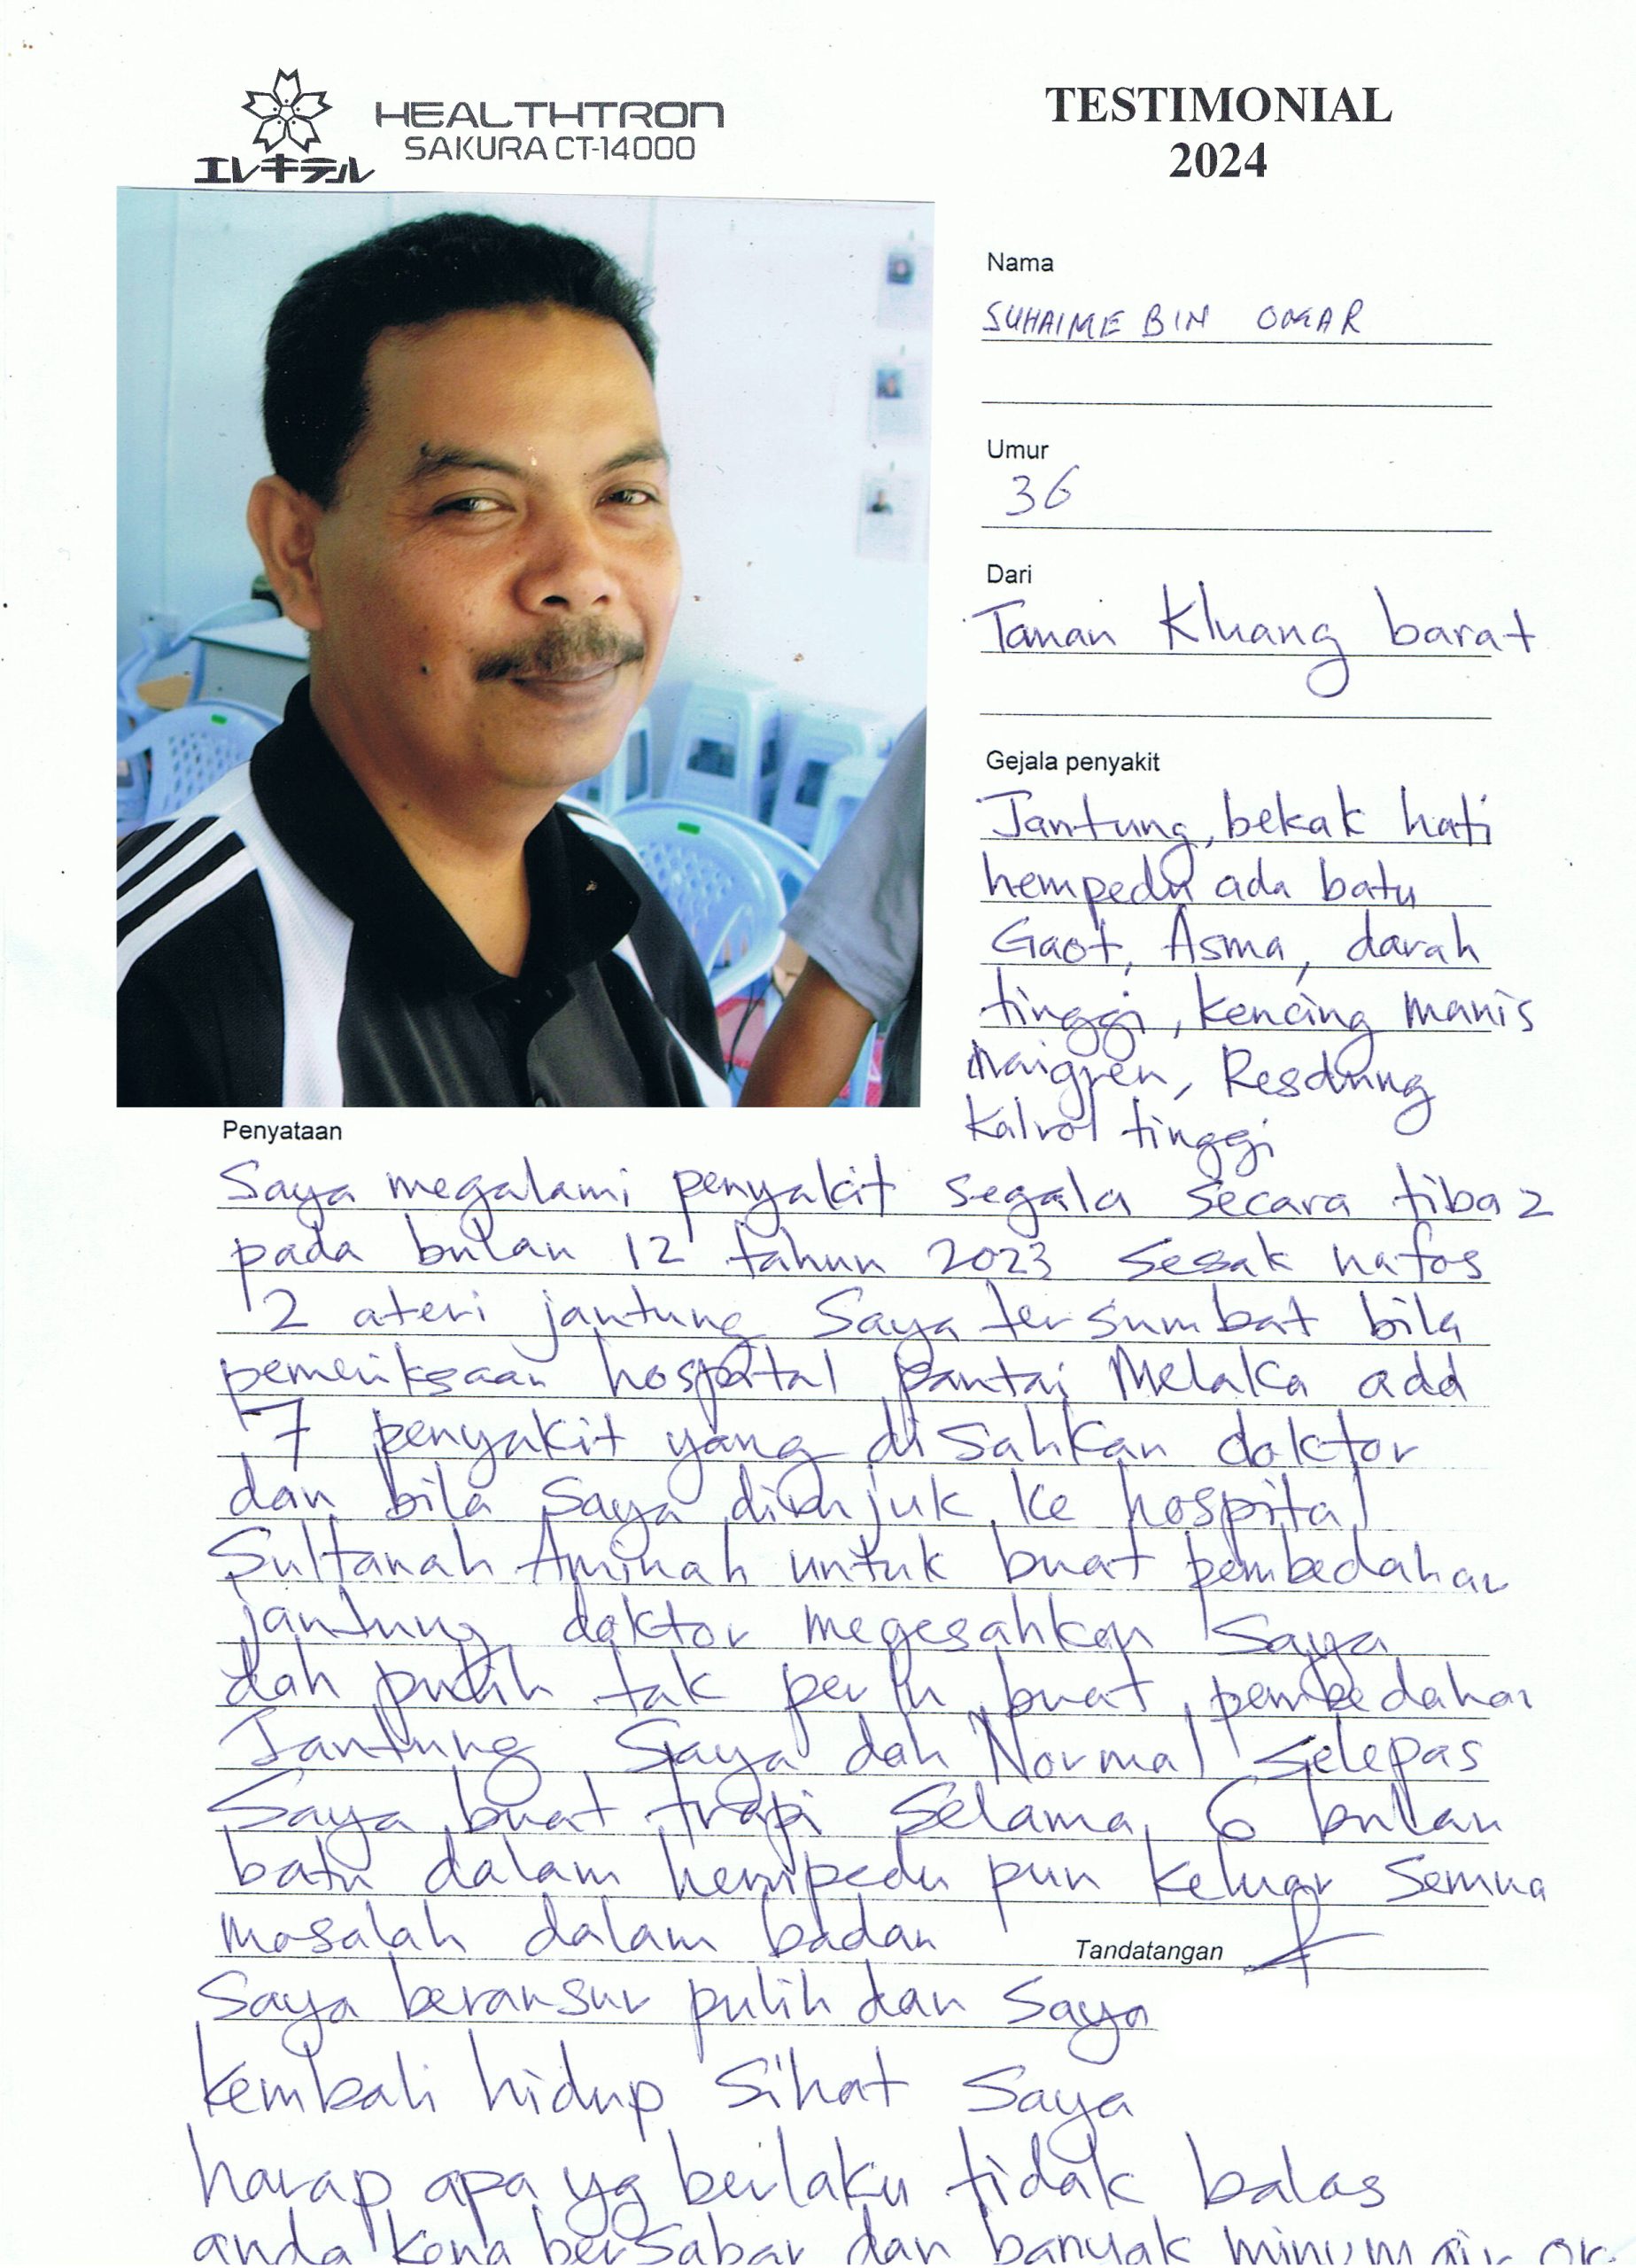 エレキテル
HEALTHTRON
SAKURA CT-14000
TESTIMONIAL
2024
Nama
SUHAIME BIN OMAR
Umur
36
Dari
Taman Kluang barat
Gejala penyakit
Jantung, bekak hati
hempedu ada batu
Gaot, Asma, darah
tinggi, kencing manis
Maigren, Resdung
tinggi
Penyataan
Saya megalami penyakit segala secara tiba2
pada bulan 12 tahun 2023 sesak nafas
2 ateri jantung Saya tersumbat bila
pemeriksaan hospital pantai Melaka add
7 penyakit yang disahkan doktor
dan bila saya dirujuk ke hospital
Sultanah Aminah untuk buat pembedahan
jantung doktor megesahkan Saya
dah pulih tak perlu buat pembedahan
Jantung Saya dah Normal selepas
Saya buat trapi selama 6 bulan
batu dalam hempedu pun keluar semua
masalah dalam badan
Tandatangan
Saya beransur pulih dan saya
kembali hidup sihat saya
harap apa yg berlaku tidak balas
anda kena bersabar dan banyak minum air